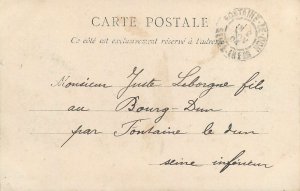 CARTE POSTALE
Ce côté est exclusivement réservé à l'adresse
Monsieur Juste Leborgne fils
au Bourg-Dun
par Fontaine le dun
seine inférieur